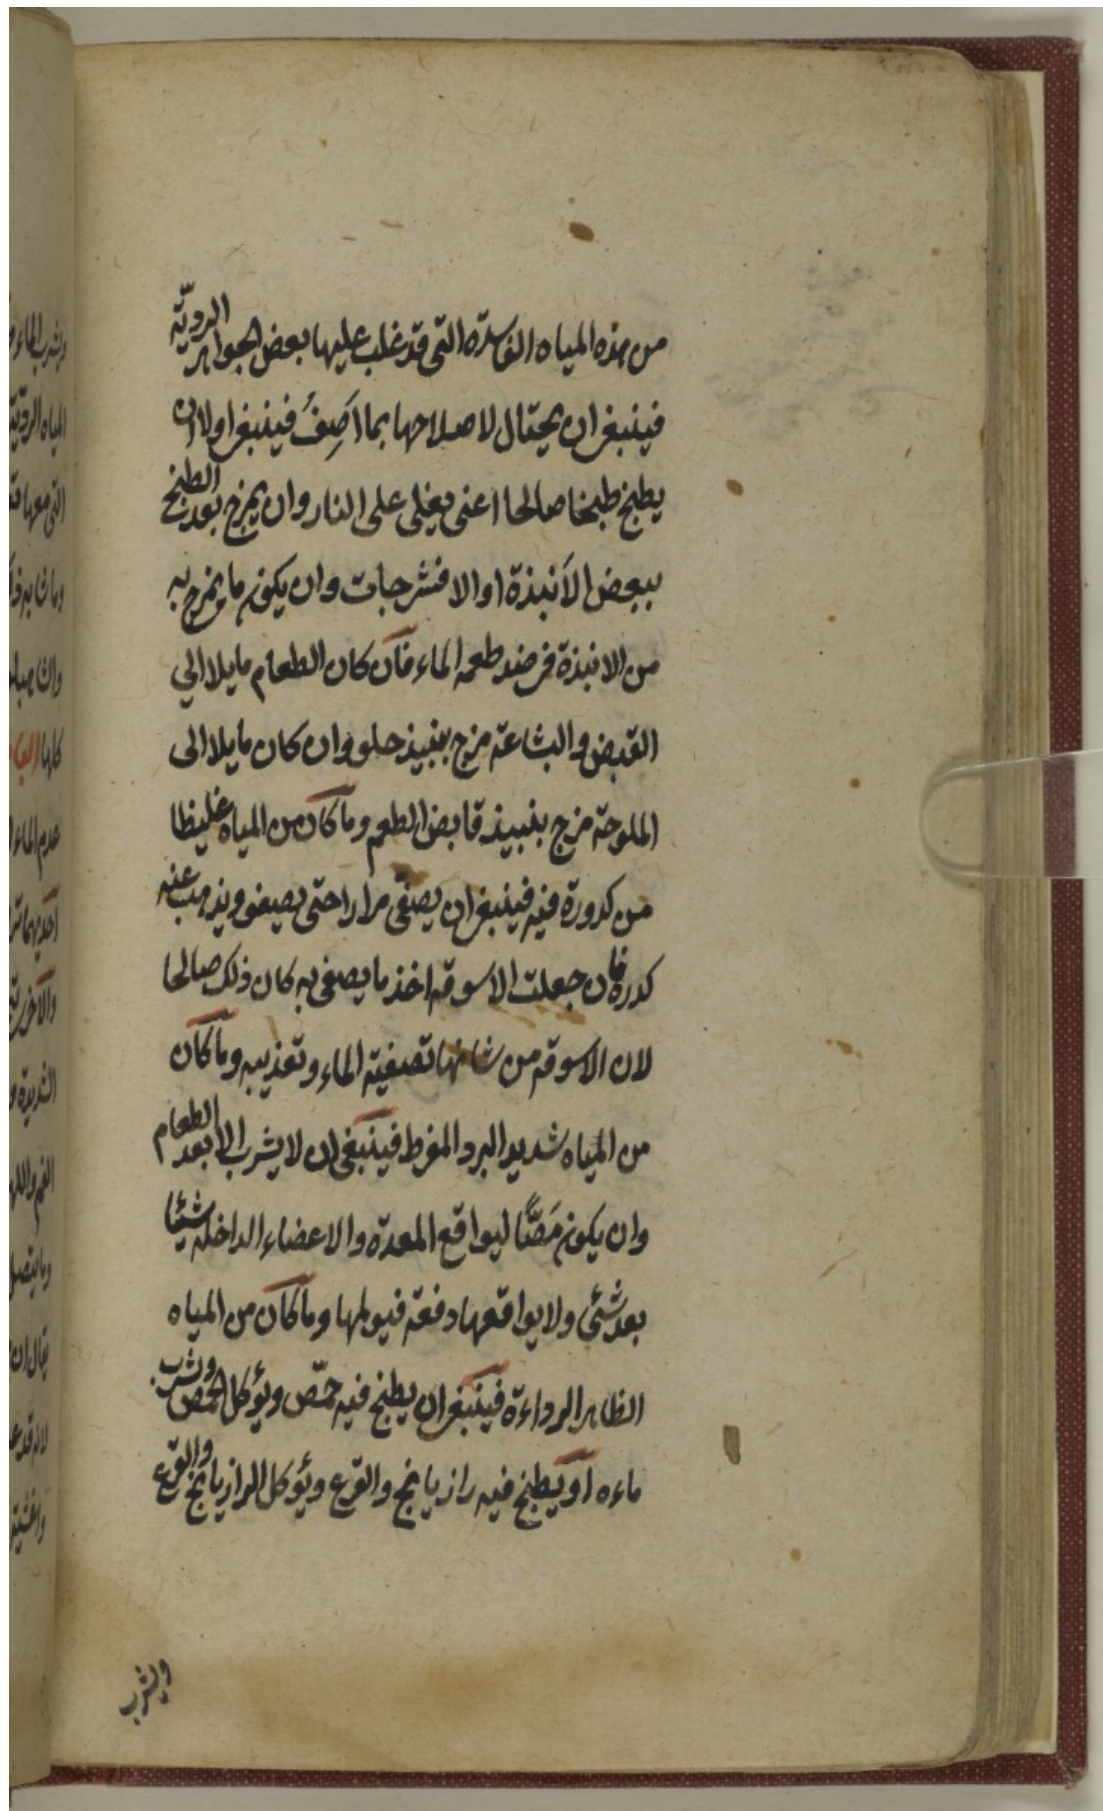 من هذه المياه الفاسدة التى قد غلب عليها بعض الجواهر الرديّة
فينبغى ان يحتال لاصلاحها بما اَصِفُ فينبغى اولا ان
يطبخ طبخا صالحا اعنى يغلى على النار وان يمزج بعد الطبخ
ببعض الاَنبذة او الافشرجات وان يكون ما يمزج به
من الانبذة فى ضد طعم الماء فان كان الطعام مايلا الي
القبض والبشاعة مزج بنبيذ حلو وان كان مايلا الى
الملوحة مزج بنبيذ قابض الطعم وما كان من المياه غليظا
من كدورة فيه فينبغى ان يصفّى مرارا حتى يصفو ويذهب عنه
كدره فان جعلت الاسوقه اخذ ما يصفى به كان ذلك صالحا
لان الاسوقه من شانها تصفية الماء وتعذيبه وما كان
من المياه شديد البرد المفرط فينبغى ان لا يشرب الا بعد الطعام
وان يكون مَصًّا ليواقع المعدة والاعضاء الداخلة شيئا
بعد شئي ولا يواقعها دفعة فيولمها وما كان من المياه
الظاهر الرداءة فينبغى ان يطبخ فيه حمّص ويؤكل الحمّص ويشرب
ماءه او يطبخ فيه رازيانج والقرع ويؤكل الرازيانج والقرع
ويشرب